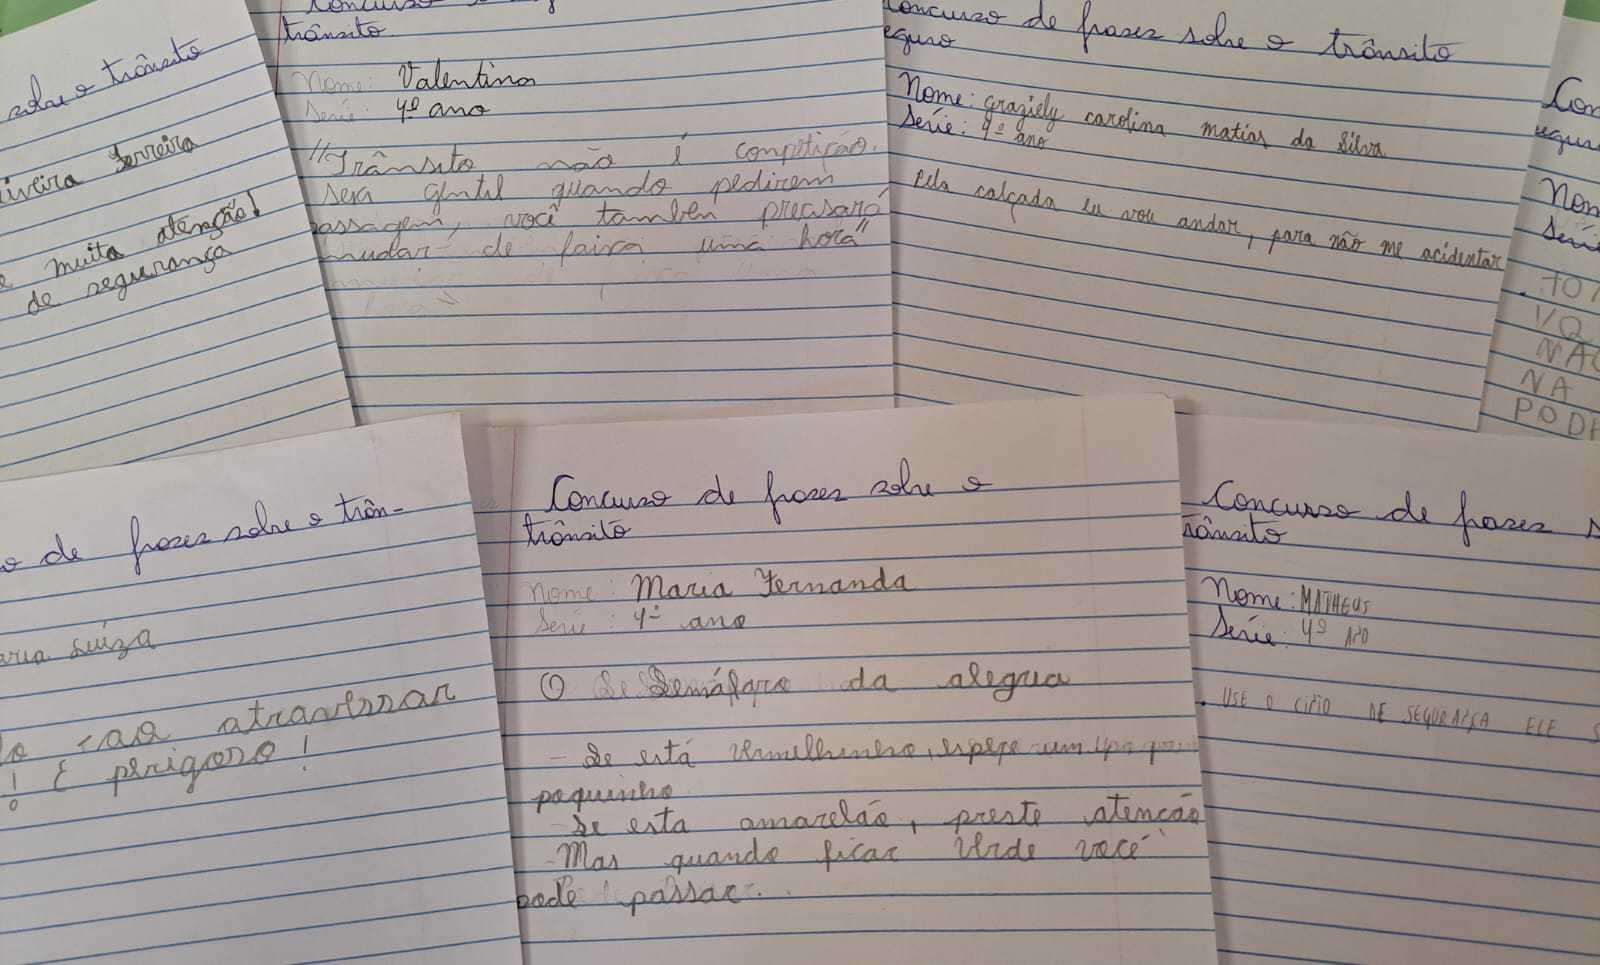 sobre o trânsito
liveira Ferreira
e muita atenção!
de segurança
Concurso
trânsito.
Nome: Valentina
Serie: 4º ano
"Trânsito não é conpetição.
seja gentil quando pedirem
passagem, você tambem precisará
mudar de faixa uma hora"
Concurso de frases sobre o trânsito
eguro
Nome: graziely carolina matias da Silva
Série: 4º ano
Pela calçada eu vou andar, para não me acidentar
Con
egur
Nom
Série
NÃO
NA
PODE
o de frases sobre o trân-
aria Luíza
atravessar
! É perigoso!
Concurso de frases sobre o
trânsito
Nome: Maria Fernanda
Serie: 4º ano
O Semáfaro da alegria
- Se está vermelhinho, espere um
poquinho
- Se esta amarelão, preste atenção
- Mas quando ficar verde você
pode passar.
Concurso de frases s
rânsito
Nome: MATHEUS
Série: 4º ANO
. USE O CINTO DE SEGURANÇA ELE S